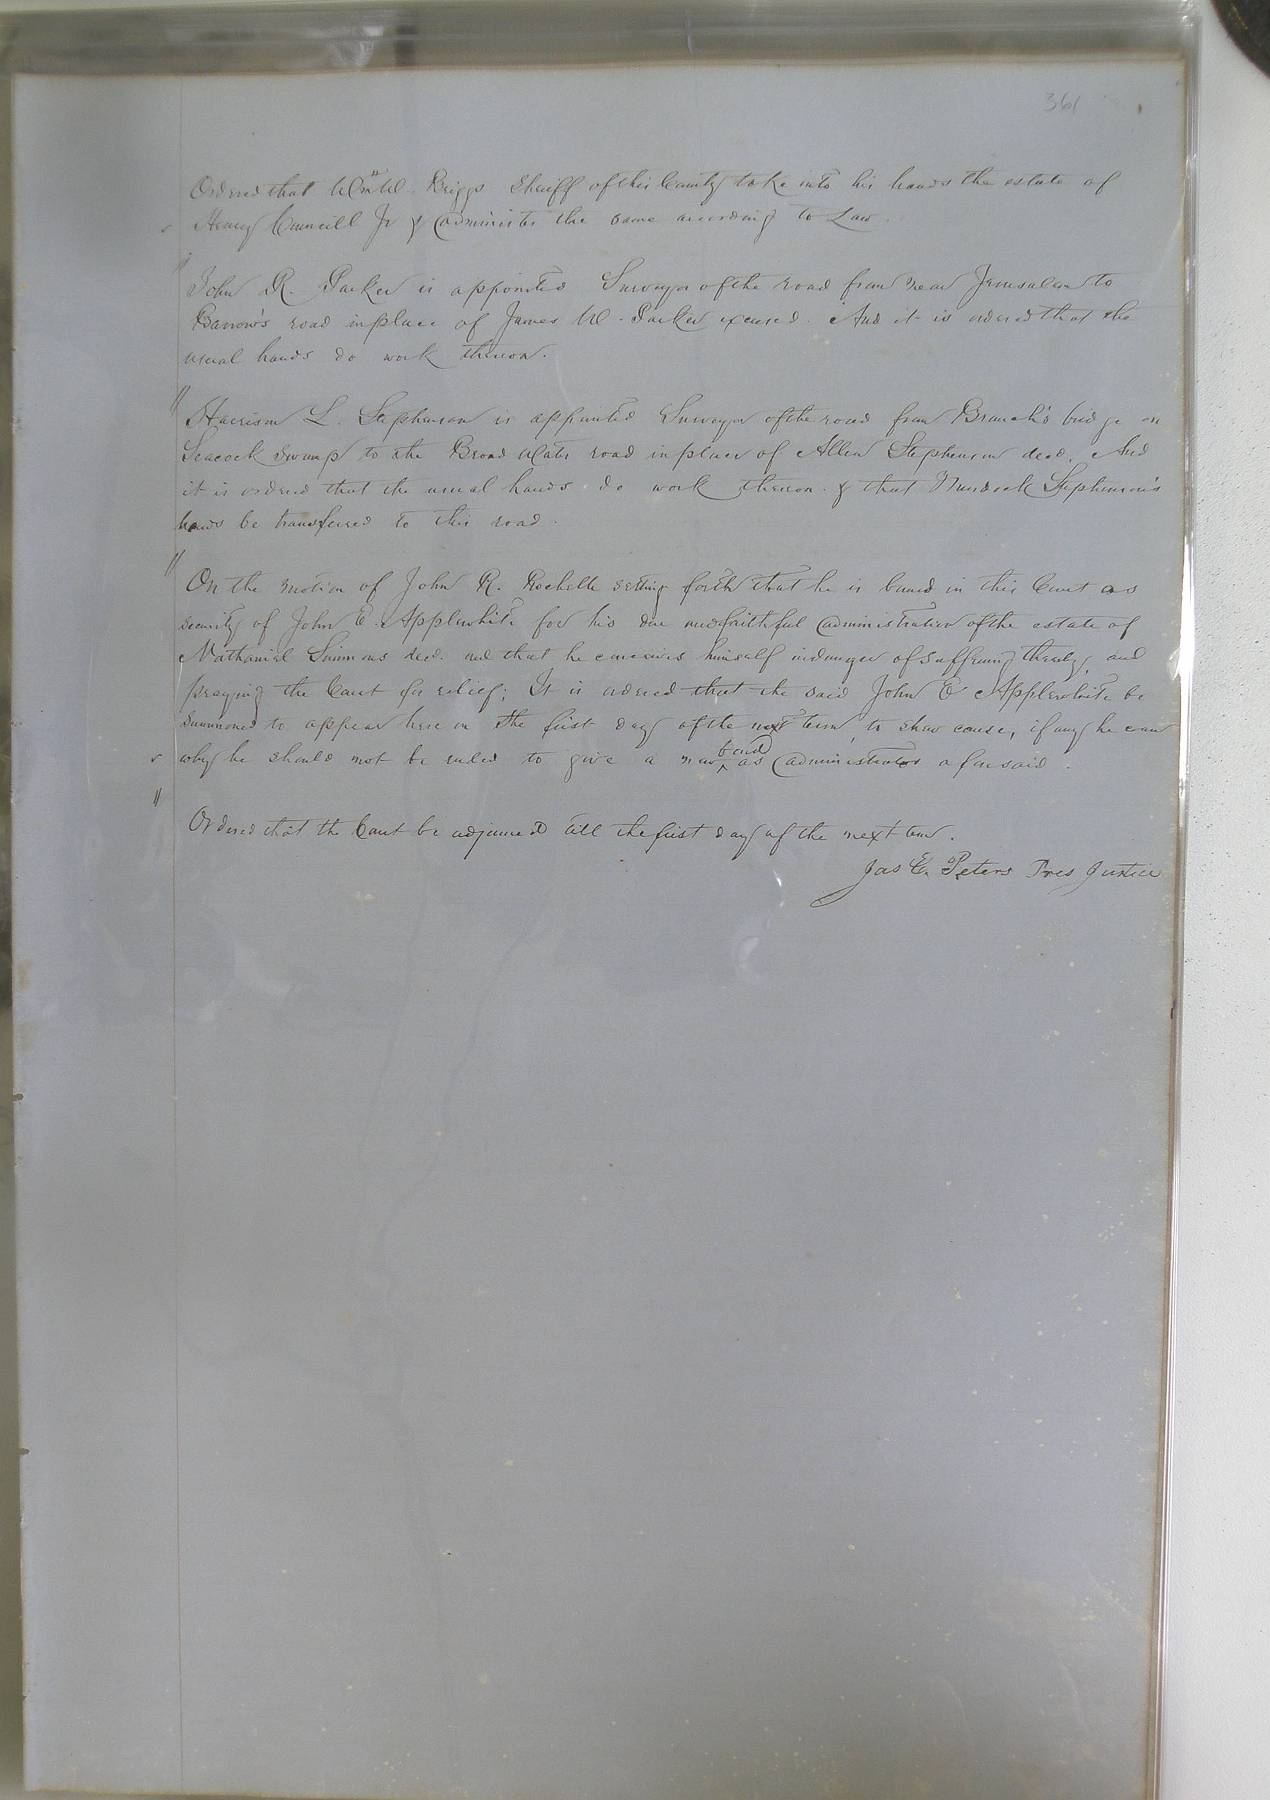 361
Ordered that Wm W. Briggs Sheriff of this County take into his hands the estate of
Henry Councill Jr & administer the same according to Law.
John R. Parker is appointed Surveyor of the road from near Jerusalem to
Barrow's road in place of James W. Parker excused. And it is ordered that the
usual hands do work thereon.
Harrison L. Stephenson is appointed Surveyor of the road from Branch's bridge on
Seacock Swamp to the Broad Water road in place of Allen Stephenson decd. And
it is ordered that the usual hands do work thereon & that Murdock Stephenson's
hands be transferred to this road.
On the motion of John R. Rochelle setting forth that he is bound in this Court as
security of John E. Applewhite for his due and faithful administration of the estate of
Nathaniel Simmons decd. and that he conceives himself in danger of suffering thereby, and
praying the Court for relief; It is ordered that the said John E Applewhite be
summoned to appear here on the first day of the next term to shew cause, if any he can
why he should not be ruled to give a new bond as administrator aforesaid.
Ordered that the Court be adjourned till the first day of the next term.
Jas E. Peters Pres Justice